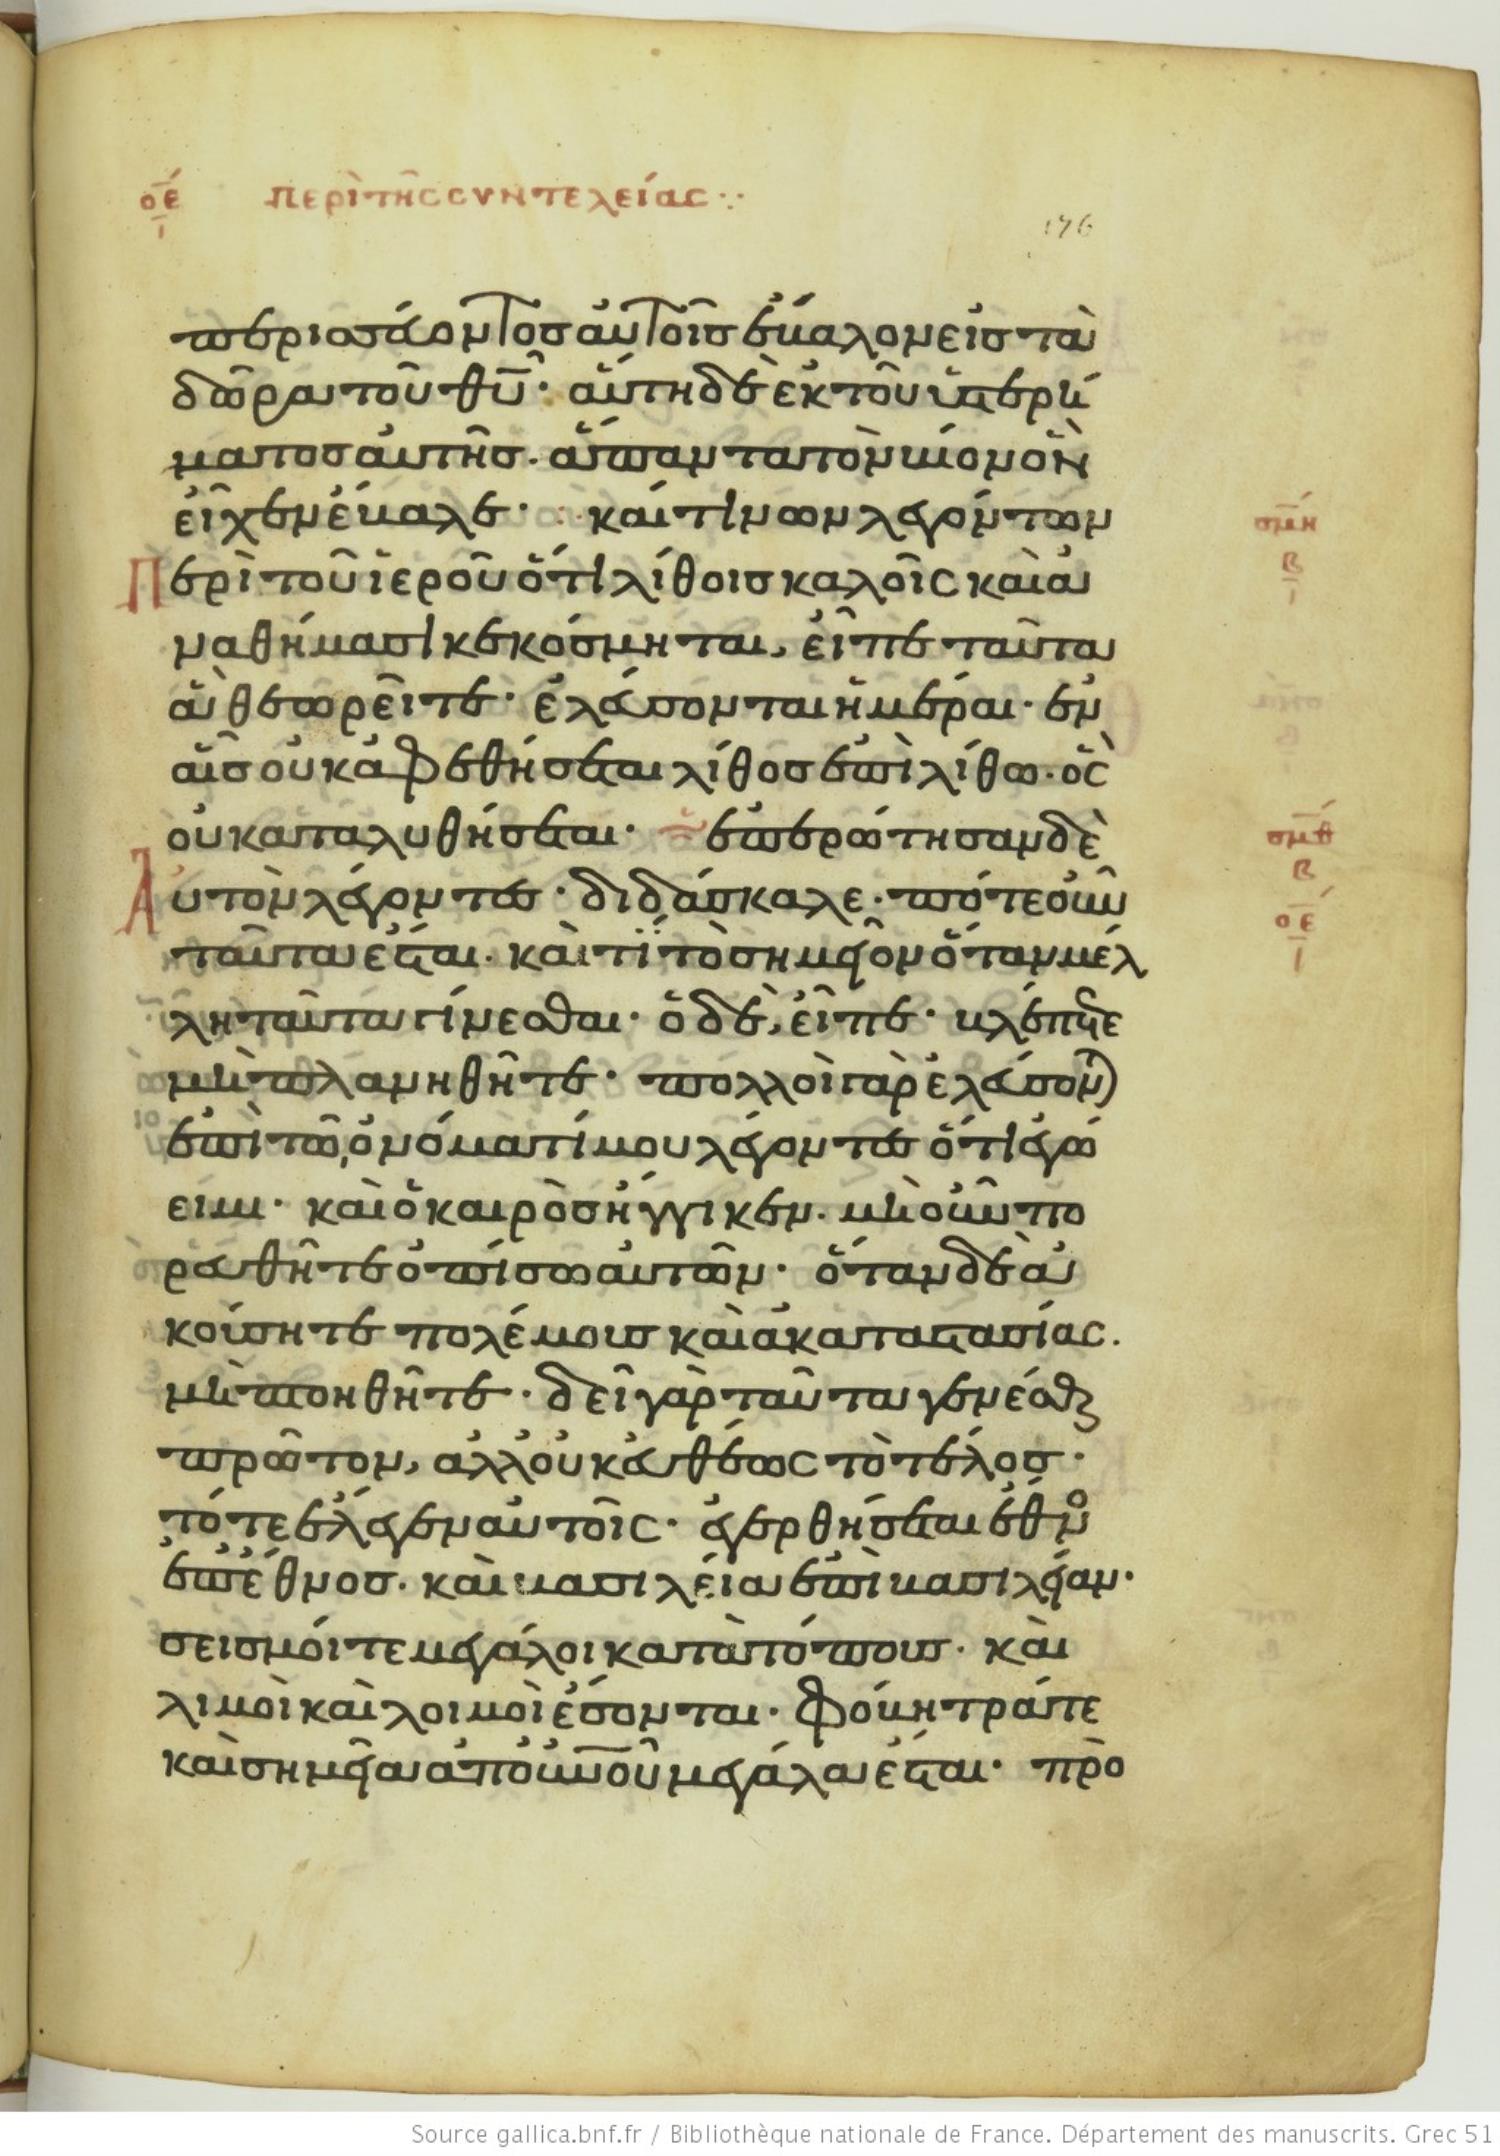 οε περὶ της συντελείας
196
περισσεύοντος αὐτοῖς ἔβαλον εἰς τὰ
δῶρα τοῦ θυ· αὕτη δὲ ἐκ τοῦ ὑστερή
ματος αὐτῆς· ἅπαντα τὸν βίον ὃν
εἶχεν ἔβαλε· καί τινων λεγόντων
σμη
Περὶ τοῦ ἱεροῦ ὅτι λίθοις καλοῖς καὶ ἀ
β
ναθήμασι κεκόσμηται, εἶπε ταῦτα
ἃ θεωρεῖτε· ἐλεύσονται ἡμέραι· ἐν
αἷς οὐκ ἀφεθήσεται λίθος ἐπὶ λίθω· ὃς
οὐ καταλυθήσεται· ἐπερώτησαν δὲ
σμθ
β
Αὐτὸν λέγοντες· διδάσκαλε· πότε οὖν
οε
ταῦτα ἔσται· καὶ τί τὸ σημεῖον ὅταν μέλ
λη ταῦτα γίνεσθαι· ὁ δὲ, εἶπε· βλέπετε
μὴ πλανηθῆτε· πολλοὶ γὰρ ἐλεύσον
ἐπὶ τῶ, ὀνόματί μου λέγοντες ὅτι ἐγώ
ειμι· καὶ ὁ καιρὸς ἤγγικεν· μὴ οὖν πο
ρευθῆτε ὀπίσω αὐτῶν· ὅταν δὲ ἀ
κούσητε πολέμους καὶ ἀκαταστασίας·
μὴ πτοηθῆτε· δεῖ γὰρ ταῦτα γενέσθαι
πρῶτον, ἀλλ' οὐκ εὐθέως τὸ τέλος·
τότε ἔλεγεν αὐτοῖς· ἐγερθήσεται ἔθνο
ἐπ' ἔθνος· καὶ βασιλεία ἐπὶ βασιλείαν·
σεισμοί τε μεγάλοι κατὰ τόπους· καὶ
λιμοὶ καὶ λοιμοὶ ἔσονται· φόβητρά τε
καὶ σημεῖα ἀπ' οὐνοῦ μεγάλα ἔσται· πρὸ
Source gallica.bnf.fr / Bibliothèque nationale de France. Département des manuscrits. Grec 51